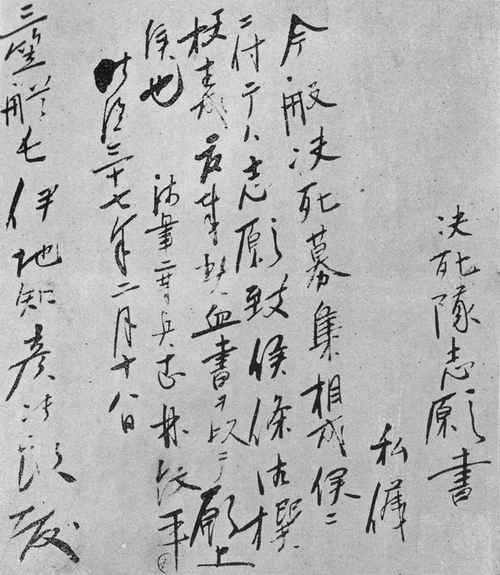 決死隊志願書
私儀
今般決死募集相成候ニ
付テハ志願致候條御撰
度 血書ヲ以テ願上
候也
海軍二等兵曹林紋平
明治三十七年二月十八日
三笠艦長伊地知彦次郎殿